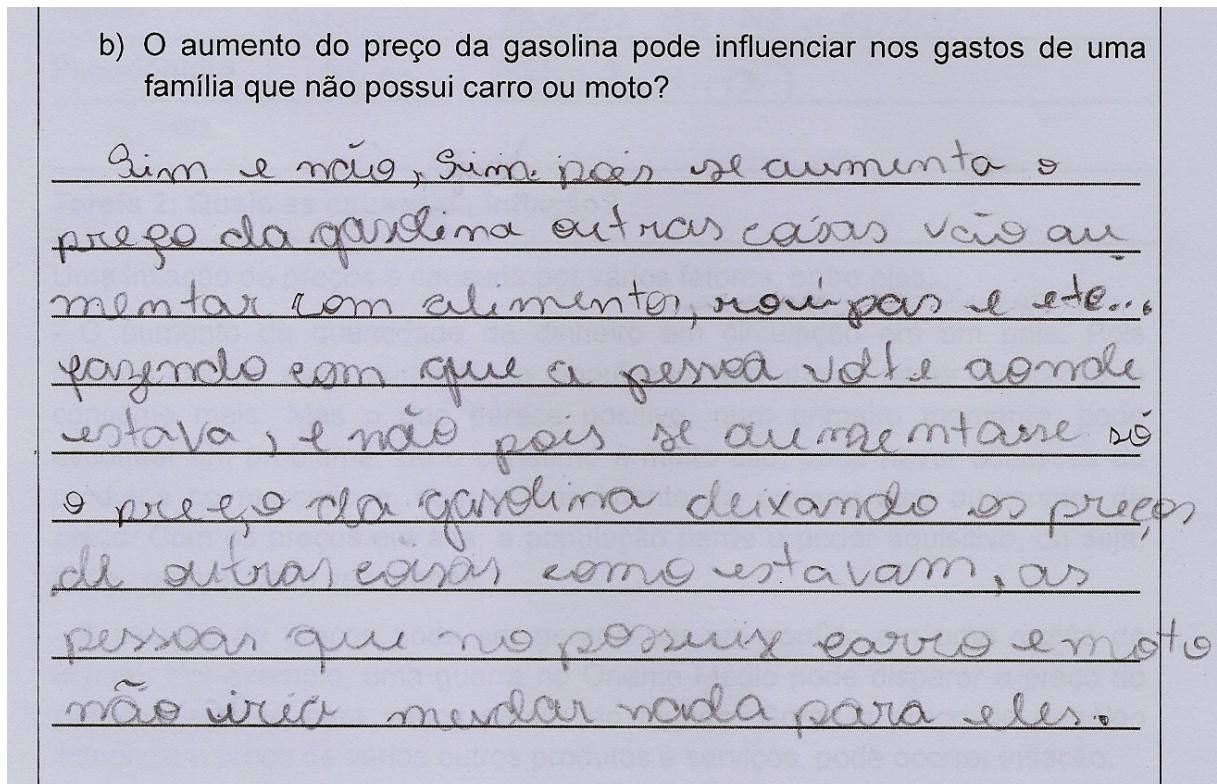 b) O aumento do preço da gasolina pode influenciar nos gastos de uma
família que não possui carro ou moto?
Sim e não, Sim pois se aumenta o
preço da gasolina outras coisas vão au
mentar com alimentos, roupas e etc...
fazendo com que a pessoa volte aonde
estava, e não pois se aumentasse só
o preço da gasolina deixando os preços
de outras coisas como estavam, as
pessoas que no possuiy carro e moto
não iria mudar nada para eles.